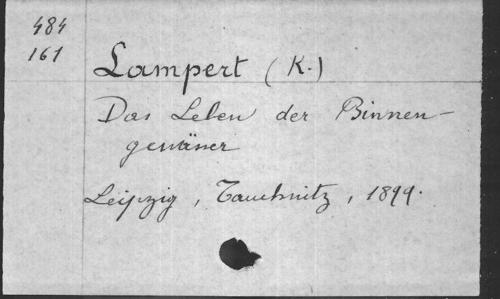 484
161
Lampert (K.)
Das Leben der Binnen-
gewässer
Leipzig, Tauchnitz, 1899.